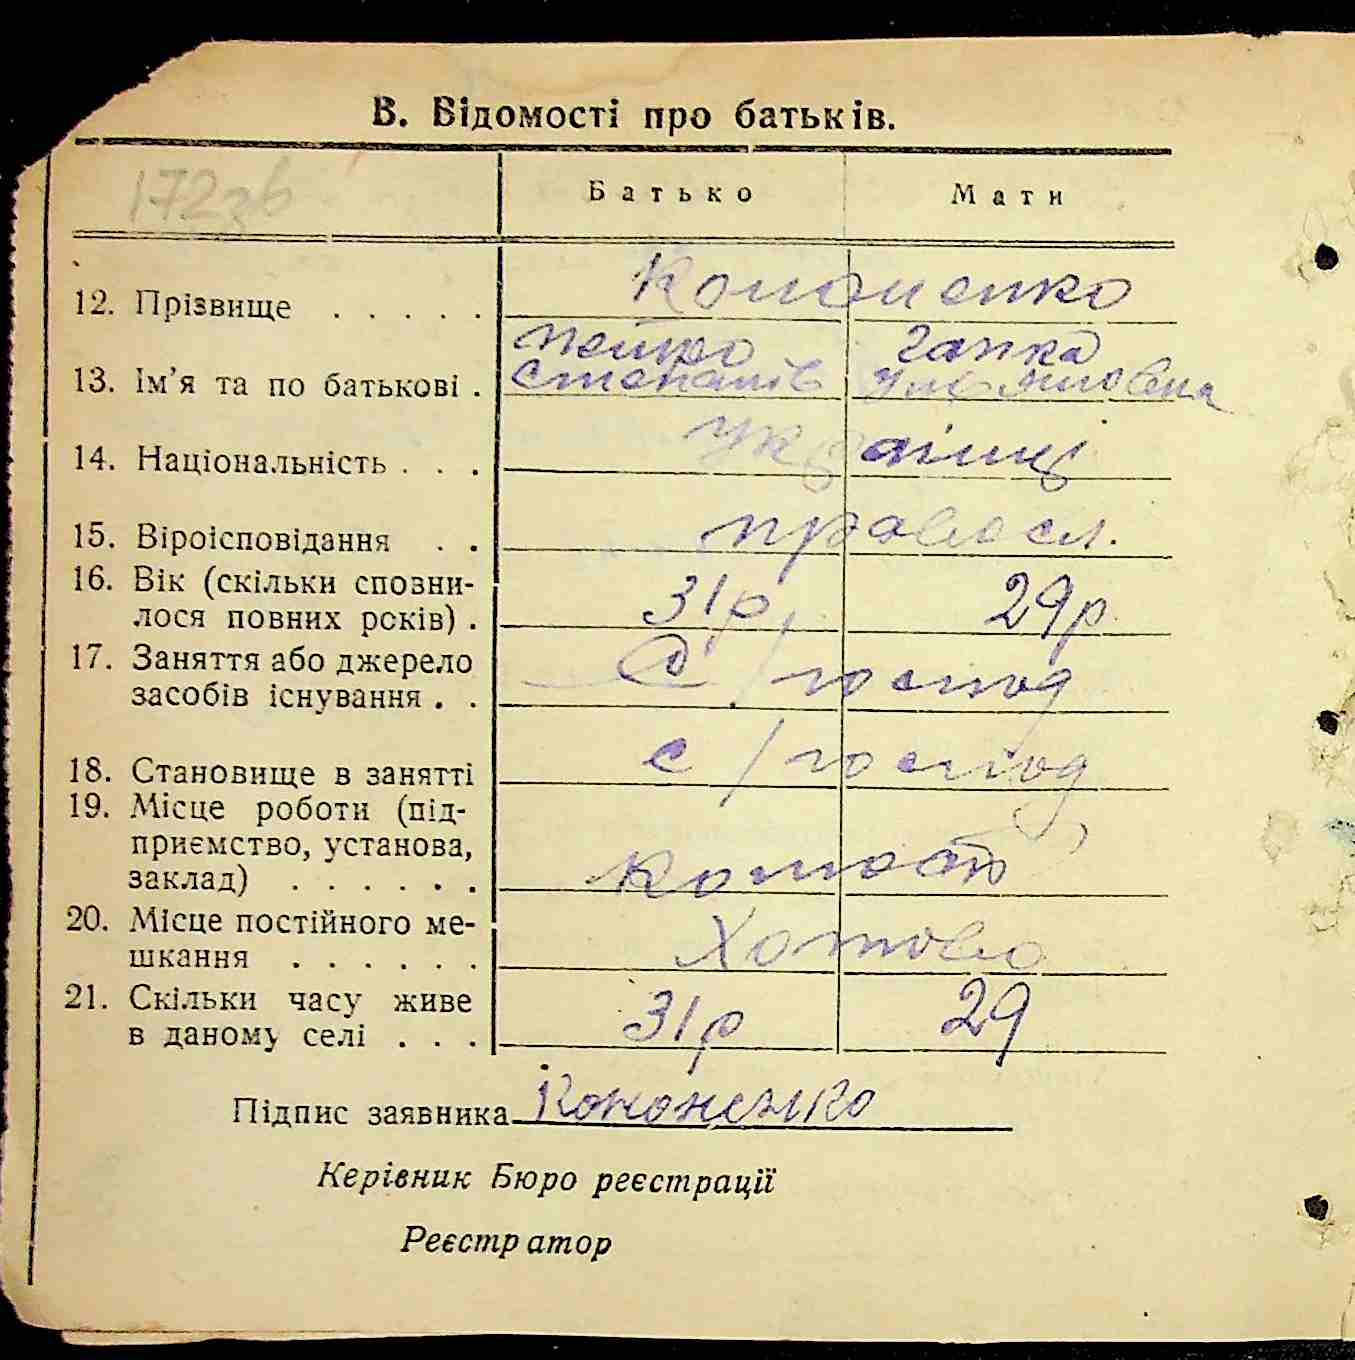 В. Відомості про батьків.
172зв
Батько Мати
12. Прізвище . . . . . Кононенко
Петро Гапка
13. Ім'я та по батькові . Степанів
14. Національність . . . Українці
15. Віроісповідання . . правосл.
16. Вік (скільки сповни-
лося повних років) . 31р. 29р.
17. Заняття або джерело
засобів існування . . С/господ
18. Становище в занятті с/господ
19. Місце роботи (під-
приємство, установа,
заклад) . . . . . .
20. Місце постійного ме-
шкання . . . . . . Хотово
21. Скільки часу живе
в даному селі . . . 31р 29
Підпис заявника Кононенко
Керівник Бюро реєстрації
Реєстратор